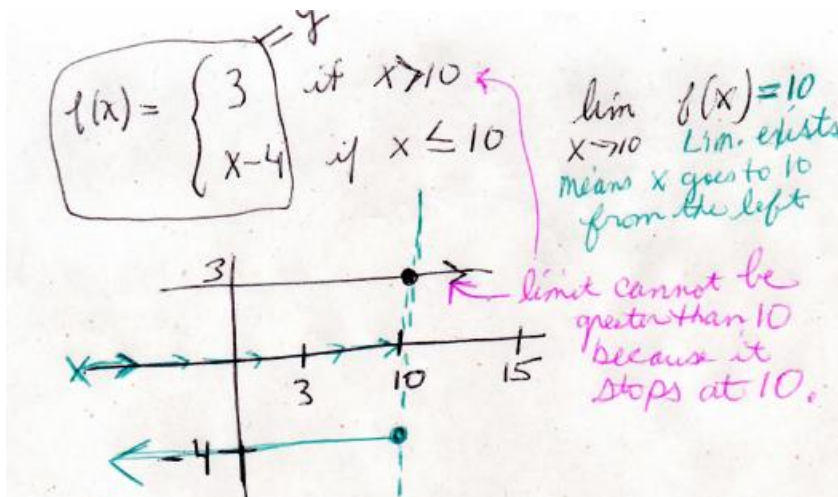 = y
f(x) = { 3 if x > 10
x-4 if x ≤ 10
lim f(x) = 10
x→10 Lim. exists
means x goes to 10
from the left
limit cannot be
greater than 10
because it
stops at 10.
3
X
3 10 15
-4